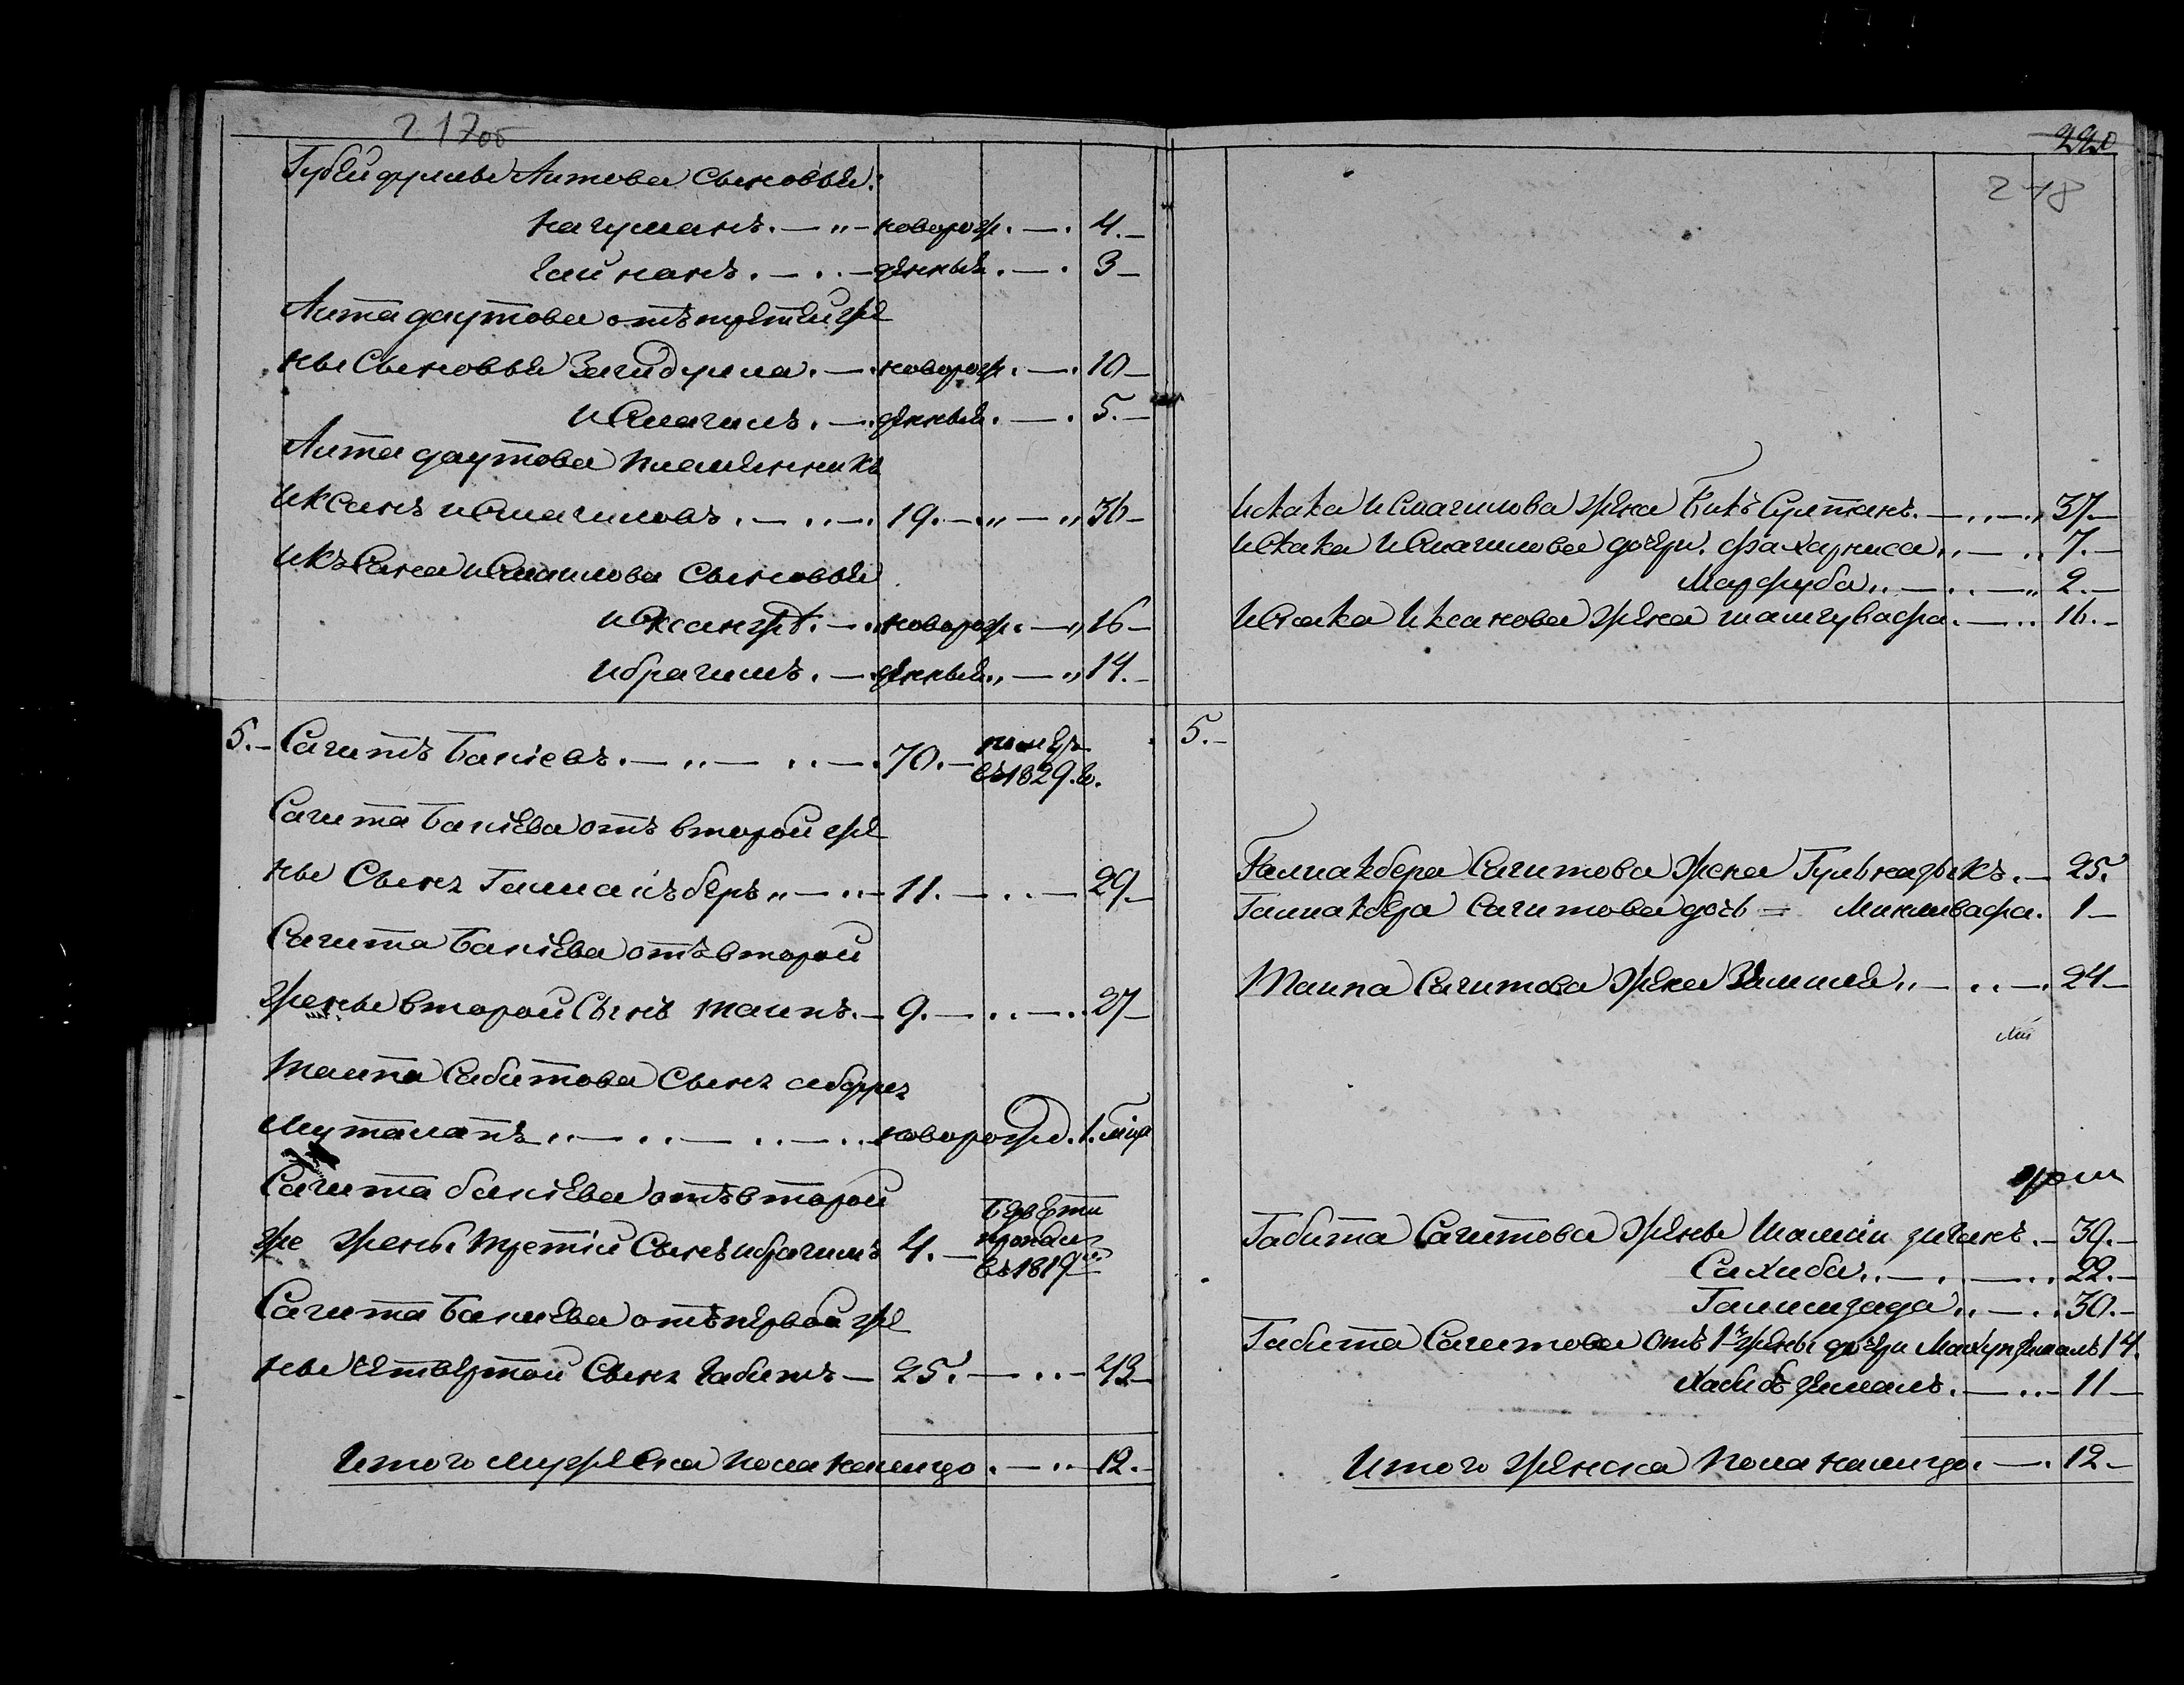 217об
Губейдуллы Аитова сыновья:
Нагуманъ. — „ — новорож. — . 4. —
Гайнанъ. — . . — денныя. — . 3 —
Аита Даутова отъ третей же
ны сыновья Загидулла. — . новорож. — . 10 —
Исмагилъ. — . денныя. — . 5. —
Аита Даутова племянникъ
Иксанъ Исмагиловъ. — . . — . 19. — „ — „ 36 —
Иксана Исмагилова сыновья
новорож. — „ 16 —
Ибрагимъ. — . денныя „ — „ 14. —
5. — Сагитъ Бакіевъ. — „ — . . — . 70. — помер
въ 1829. г.
Сагита Бакіева отъ второй же
ны сынъ Галиакберъ „ — . . — 11. — . . — 29 —
Сагита Бакіева отъ второй
жены второй сынъ Таипъ. — 9. — . . — . . 27 —
Таипа Сабитова сынъ
Муталапъ . . — . . — . . — . . новорожд. 1. мѣся
Сагита Бакіева отъ второй
же жены третій сынъ Ибрагимъ 4. — безъ вѣсти
пропалъ
въ 1819 м
Сагита Бакиева отъ первой же
ны четвертой сынъ Габитъ — 25. — . . — 43 —
Итого мужеска пола налицо. — . . — 12. —
220
218
Исхака Исмагилова жена Бикъ Султанъ. — . . — „ 37. —
Исхака Исмагилова дочери. Фахарниса . . — . . 7. —
Марфуба . . — . . — „ 2. —
Исхака Иксанова жена Шамгувафа. — . . 16. —
5. —
Галиакбера Сагитова жена Гульназыкъ. — 25.
Галиакбера Сагитова дочь = Минливафа. 1 —
Таипа Сагитова жена . . — . . — . 24 —
Габита Сагитова жены — 39. —
Сахиба . . — . — . . 22. —
Галимзада . . — . . 30. —
Габита Сагитова отъ 1й жены дочери 14.
Хабибъ Земалъ. — . . — 11 —
Итого женска пола налицо. — . 12. —